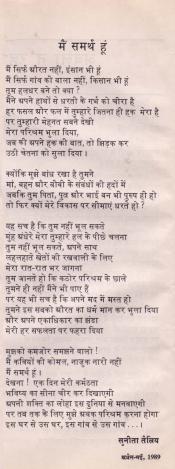 मैं समर्थ हूं
मैं सिर्फ औरत नहीं, इंसान भी हूं
मैं सिर्फ गांव की बाला नहीं, किसान भी हूं
तुम हलधर बने तो क्या ?
मैंने अपने हाथों से धरती के गर्भ को चीरा है
हर फसल और फल में तुम्हारे जितना ही हक मेरा है
पर तुम्हारी मेहनत सबने देखी
मेरा परिश्रम भुला दिया,
जब की अपने हक की बात, तो झिड़क कर
उठी चेतना को सुला दिया ।
क्योंकि मुझे बांध रखा है तुमने
मां, बहन और बीवी के संबंधों की हदों में
जबकि तुम पिता, पुत्र और भाई बन भी पुरुष ही हो
तो फिर क्यों मेरे विकास पर सीमाएं धरते हो ?
यह सच है कि तुम नहीं भूल सकते
मुंह अंधेरे मेरा तुम्हारे हल के पीछे चलना
तुम नहीं भूल सकते, अपने साथ
लहलहाते खेतों की रखवाली के लिए
मेरा रात-रात भर जागना
तुम जानते हो कि कठोर परिश्रम के छाले
तुमने ही नहीं मैंने भी पाए हैं
पर यह भी सच है कि अपने मद में मस्त हो
तुमने इस सबको औरत का धर्म मान कर भुला दिया
और अपने एकाधिकार का झंडा
मेरी हर सफलता पर फहरा दिया
मुझको कमजोर समझने वालो !
मैं कवियों की कोमल, नाजुक नारी नहीं
मैं समर्थ हूं ।
देखना ! एक दिन मेरी कर्मठता
भविष्य का सीना चीर कर दिखाएगी
अपनी शक्ति का लोहा इस दुनिया से मनवाएगी
पर तब तक के लिए मुझे अथक परिश्रम करना होगा
इस घर से उस घर, इस गांव से उस गांव . . . ।
सुनीता तैलिय
अप्रैल-मई, 1989